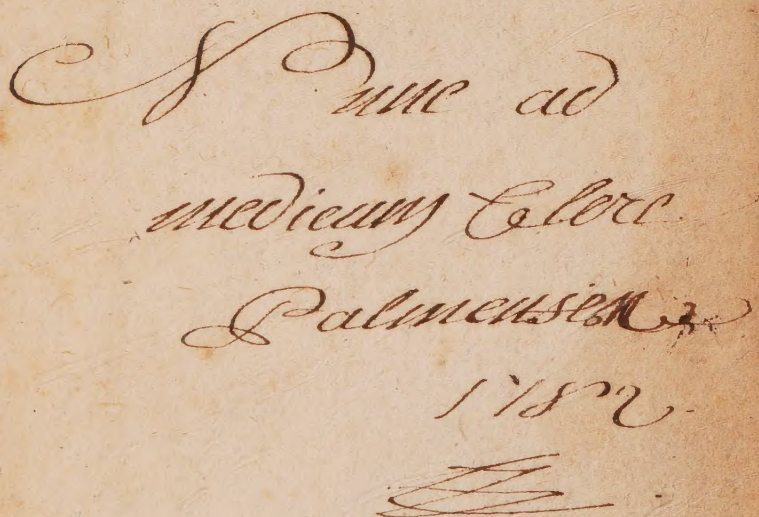 Nunc ad
medicum Clerc
Palmensem
1782